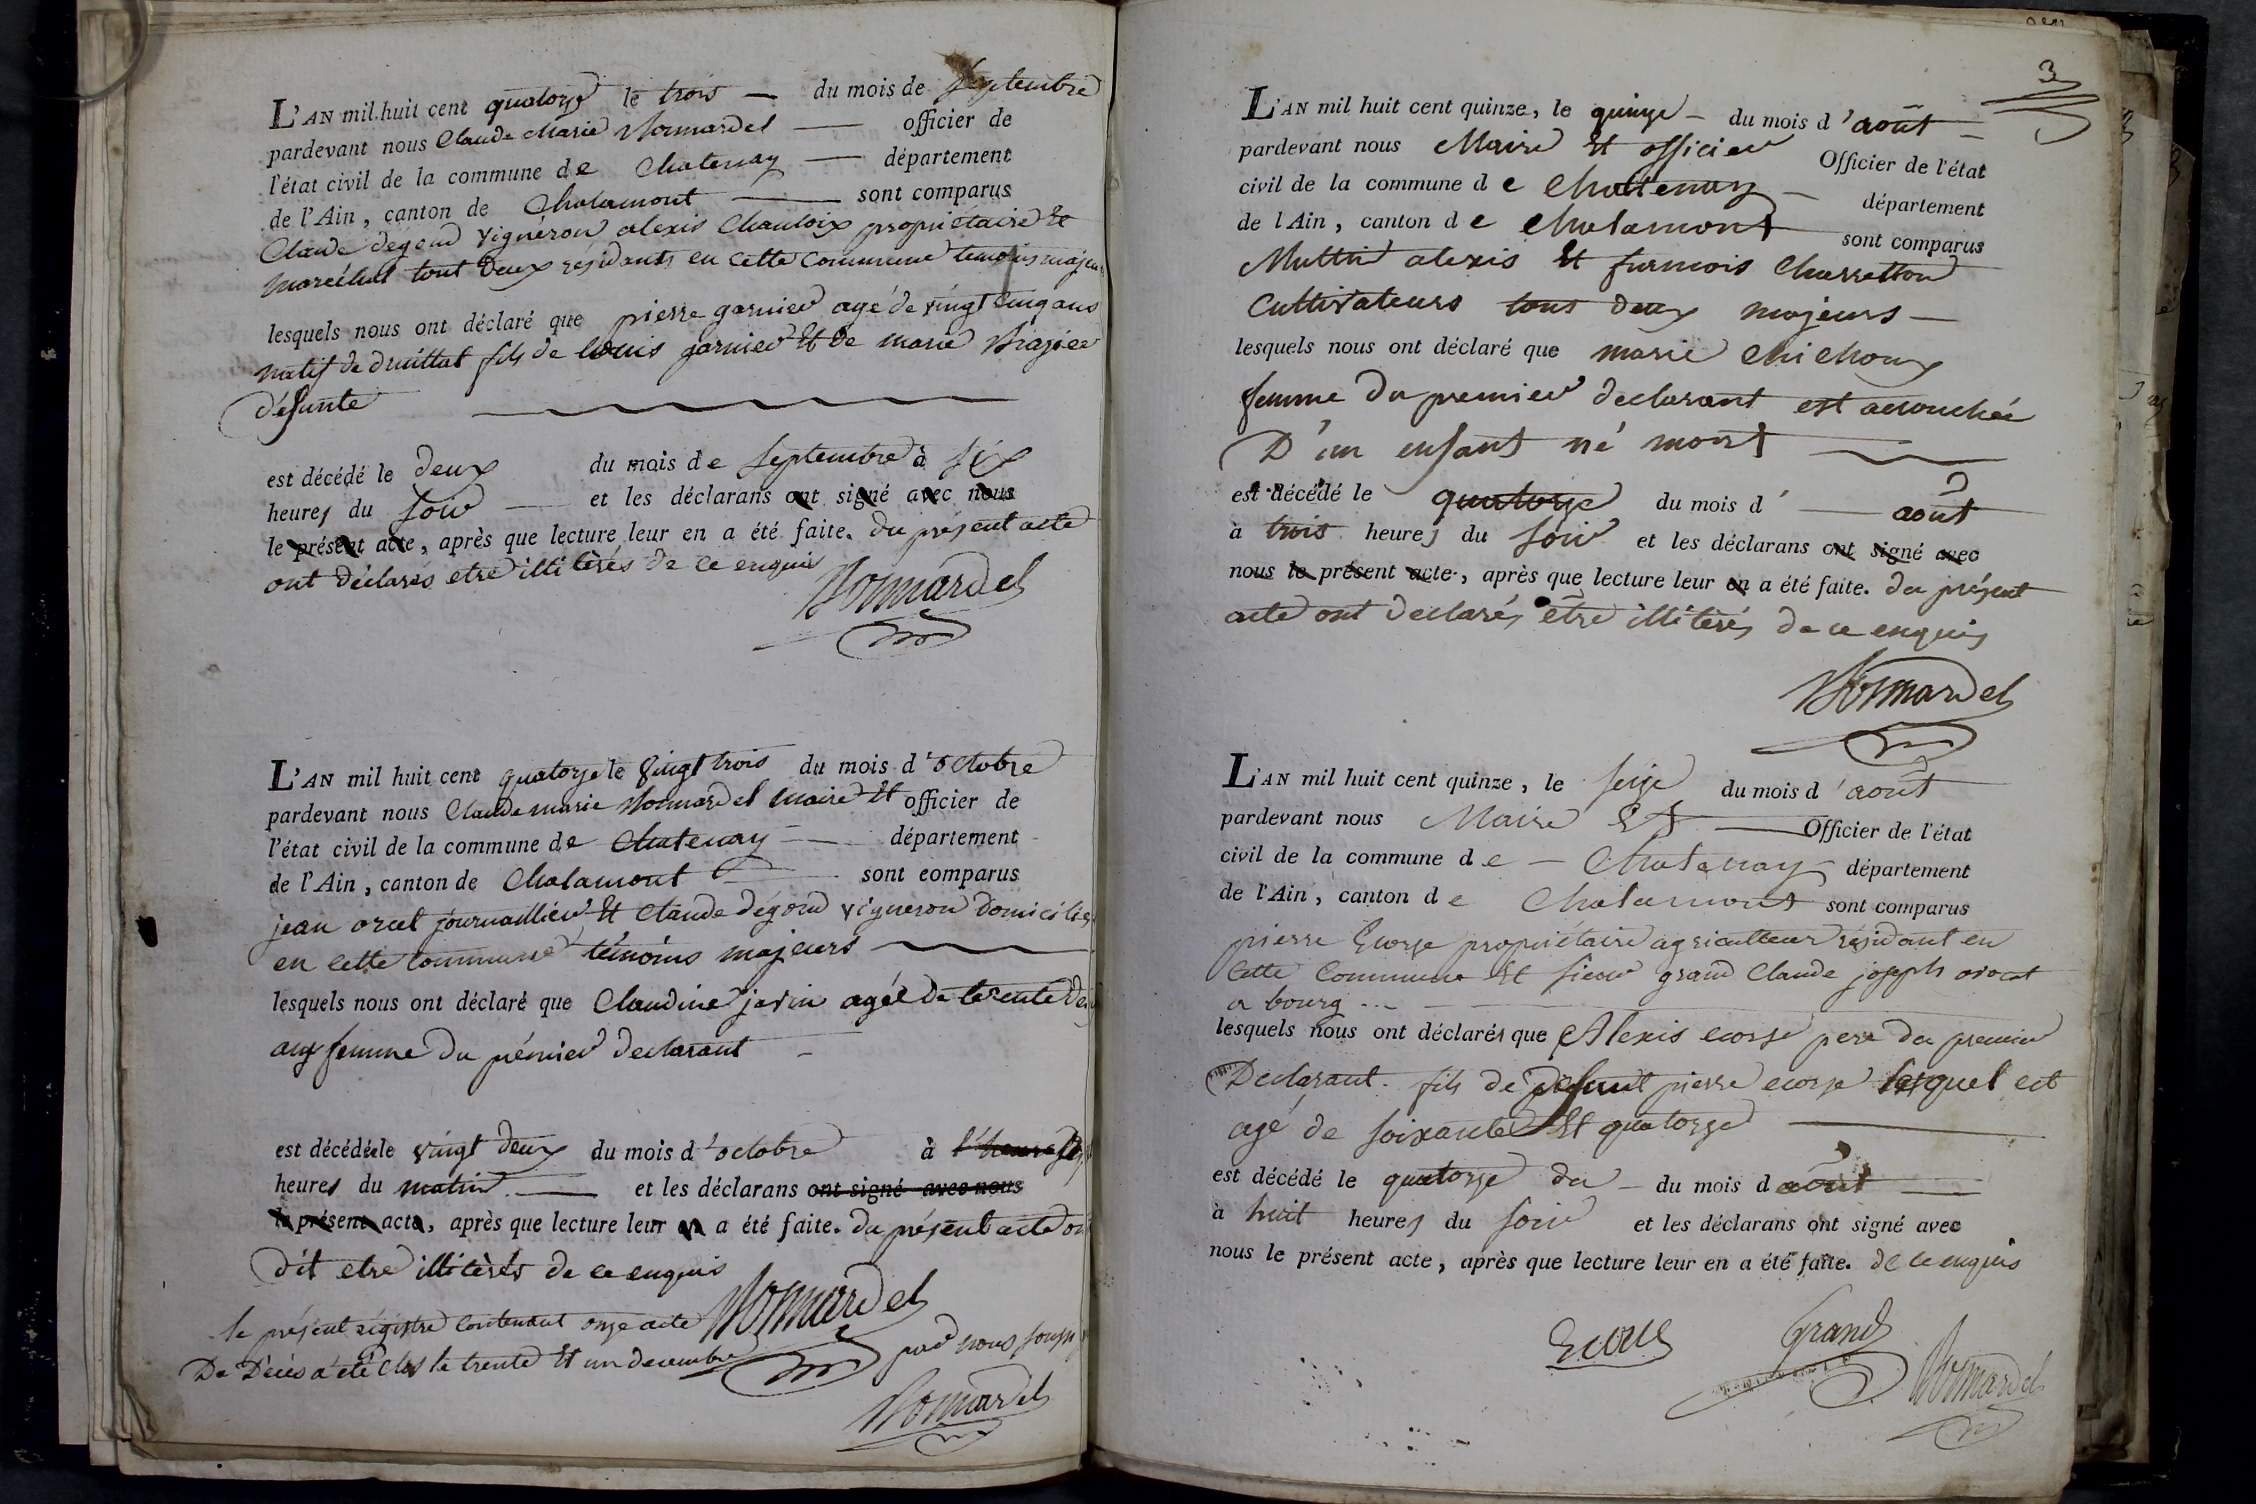 L'AN mil huit cent quatorze le trois — du mois de Septembre
pardevant nous Claude Marie Monnardel — officier de
l'état civil de la commune de Chatenay — département
de l'Ain, canton de Chalamont — sont comparus
Claude degoud vigneron alexis Chanloix propriétaire et
marechal tout deux résidants en cette commune temoins majeurs
lesquels nous ont déclaré que pierre garnier agé de vingt cinq ans
natif de druillat fils de louis garnier et de marie
défunte
est décédé le deux du mois de septembre à six
heures du soir — et les déclarans ont signé avec nous
le présent acte, après que lecture leur en a été faite. du présent acte
ont déclarés etre illiterés de ce enquis
Monnardel
L'AN mil huit cent quatorze le vingt trois du mois d'octobre
pardevant nous Claude marie Monnardel maire et officier de
l'état civil de la commune de Chatenay — département
de l'Ain, canton de Chalamont — sont comparus
jean orcel journaillier et claude dégoud vigneron domiciliés
en cette commune témoins majeurs
lesquels nous ont déclaré que Claudine javin agée de trente
ans femme du prémier declarant
est décédée le vingt deux du mois d'octobre à l'heure
heures du matin — et les déclarans ont signé avec nous
le présent acte, après que lecture leur en a été faite. du présent acte ont
dit etre illiterés de ce enquis
Monnardel
le présent régistre contenant onze acte
De Décès a été clos le trente et un decembre par nous
Monnardel
3
L'AN mil huit cent quinze, le quinze — du mois d'août —
pardevant nous Maire et officier Officier de l'état
civil de la commune de Chatenay — département
de l'Ain, canton de Chalamont sont comparus
Muttin alexis et francois Charretton
Cultivateurs tous deux majeurs —
lesquels nous ont déclaré que marie Chichoux
femme du premier declarant est acouchée
D'un enfant né mort
est décédé le quatorze du mois d' — août
à trois heures du soir et les déclarans ont signé avec
nous le présent acte, après que lecture leur en a été faite. du présent
acte ont declarés être illiterés de ce enquis
Monnardel
L'AN mil huit cent quinze, le seize du mois d'août
pardevant nous Maire et — Officier de l'état
civil de la commune de — Chatenay — département
de l'Ain, canton de Chalamont sont comparus
pierre Ecorse propriétaire agriculteur résidant en
cette Commune et sieur grand Claude joseph avocat
a bourg
lesquels nous ont déclarés que Alexis ecorse pere du premier
Declarant. fils de défunt pierre ecorse lequel est
agé de soixante et quatorze
est décédé le quatorze du — du mois d août —
à huit heures du soir et les déclarans ont signé avec
nous le présent acte, après que lecture leur en a été faite. de ce enquis
Grand
Monnardel